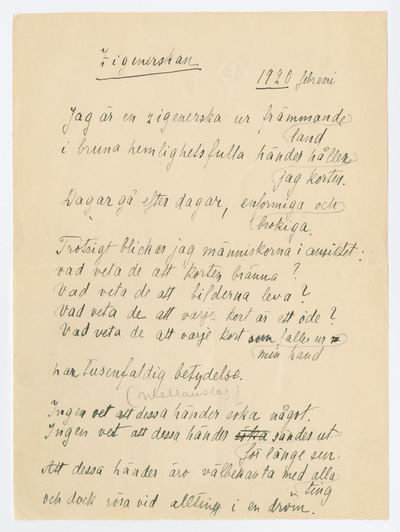 Zigenerskan
1920 februari
Jag är en zigenerska ur främmande
land
i bruna hemlighetsfulla händer håller
jag korten.
Dagar gå efter dagar, enformiga och
brokiga.
Trotsigt blickar jag människorna i ansiktet:
vad veta de att korten bränna?
Vad veta de att bilderna leva?
Vad veta de att varje kort är ett öde?
Vad veta de att varje kort som faller ur
min hand
har tusenfaldig betydelse.
(mellanslag)
Ingen vet att dessa händer söka något.
Ingen vet att dessa händer söka sändes ut
för länge sen.
Att dessa händer äro välbekanta med alla
ting
och dock röra vid allting i en dröm.